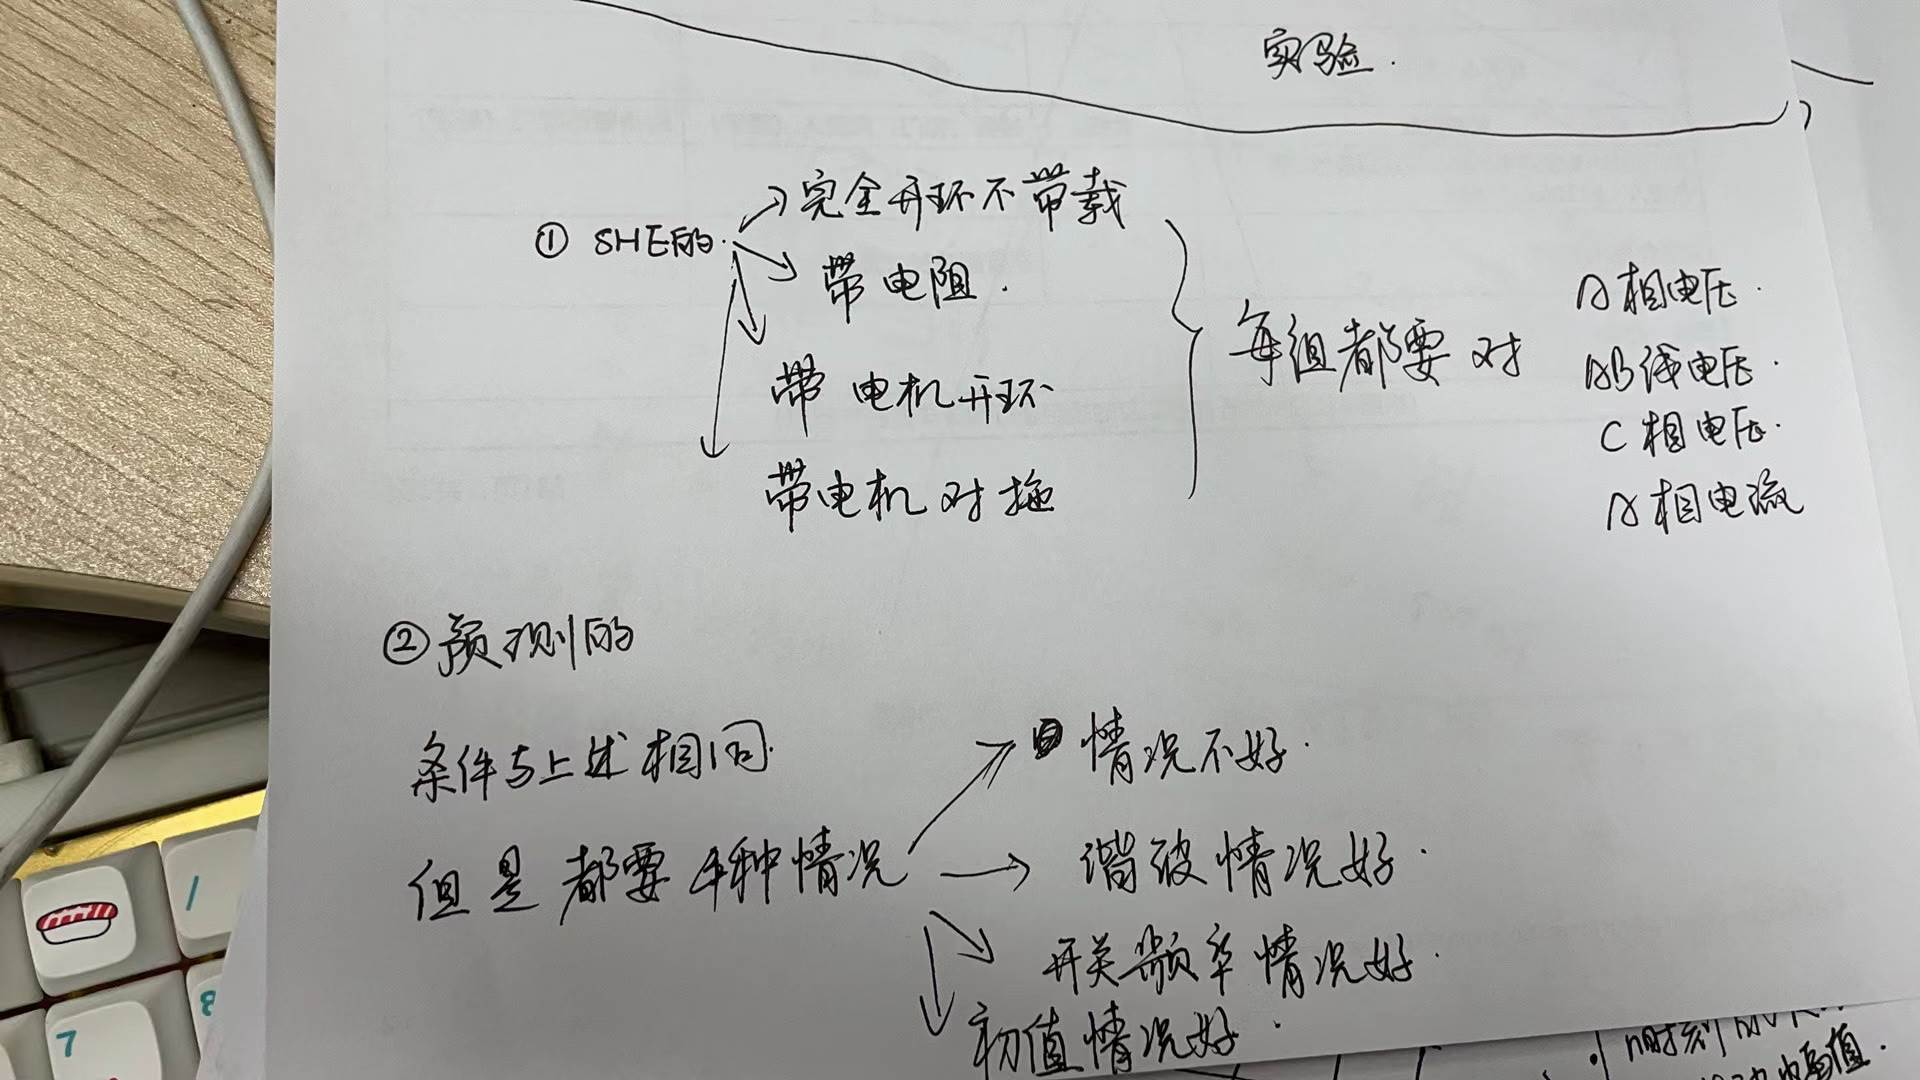 实验.
① SHE的.
完全开环不带载
带电阻.
带电机开环
带电机对拖
每组都要对
A相电压.
AB线电压.
C相电压.
A相电流
②预测的
条件与上述相同.
但是都要4种情况
情况不好.
谐波情况好.
开关频率情况好.
初值情况好.
n时刻
幅值.
7
8
/